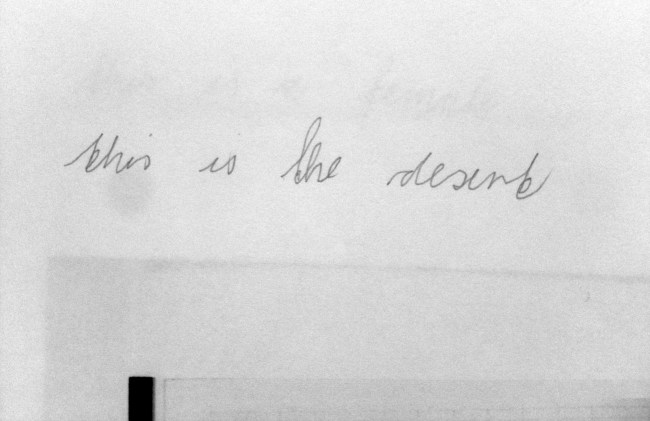 this is the desert